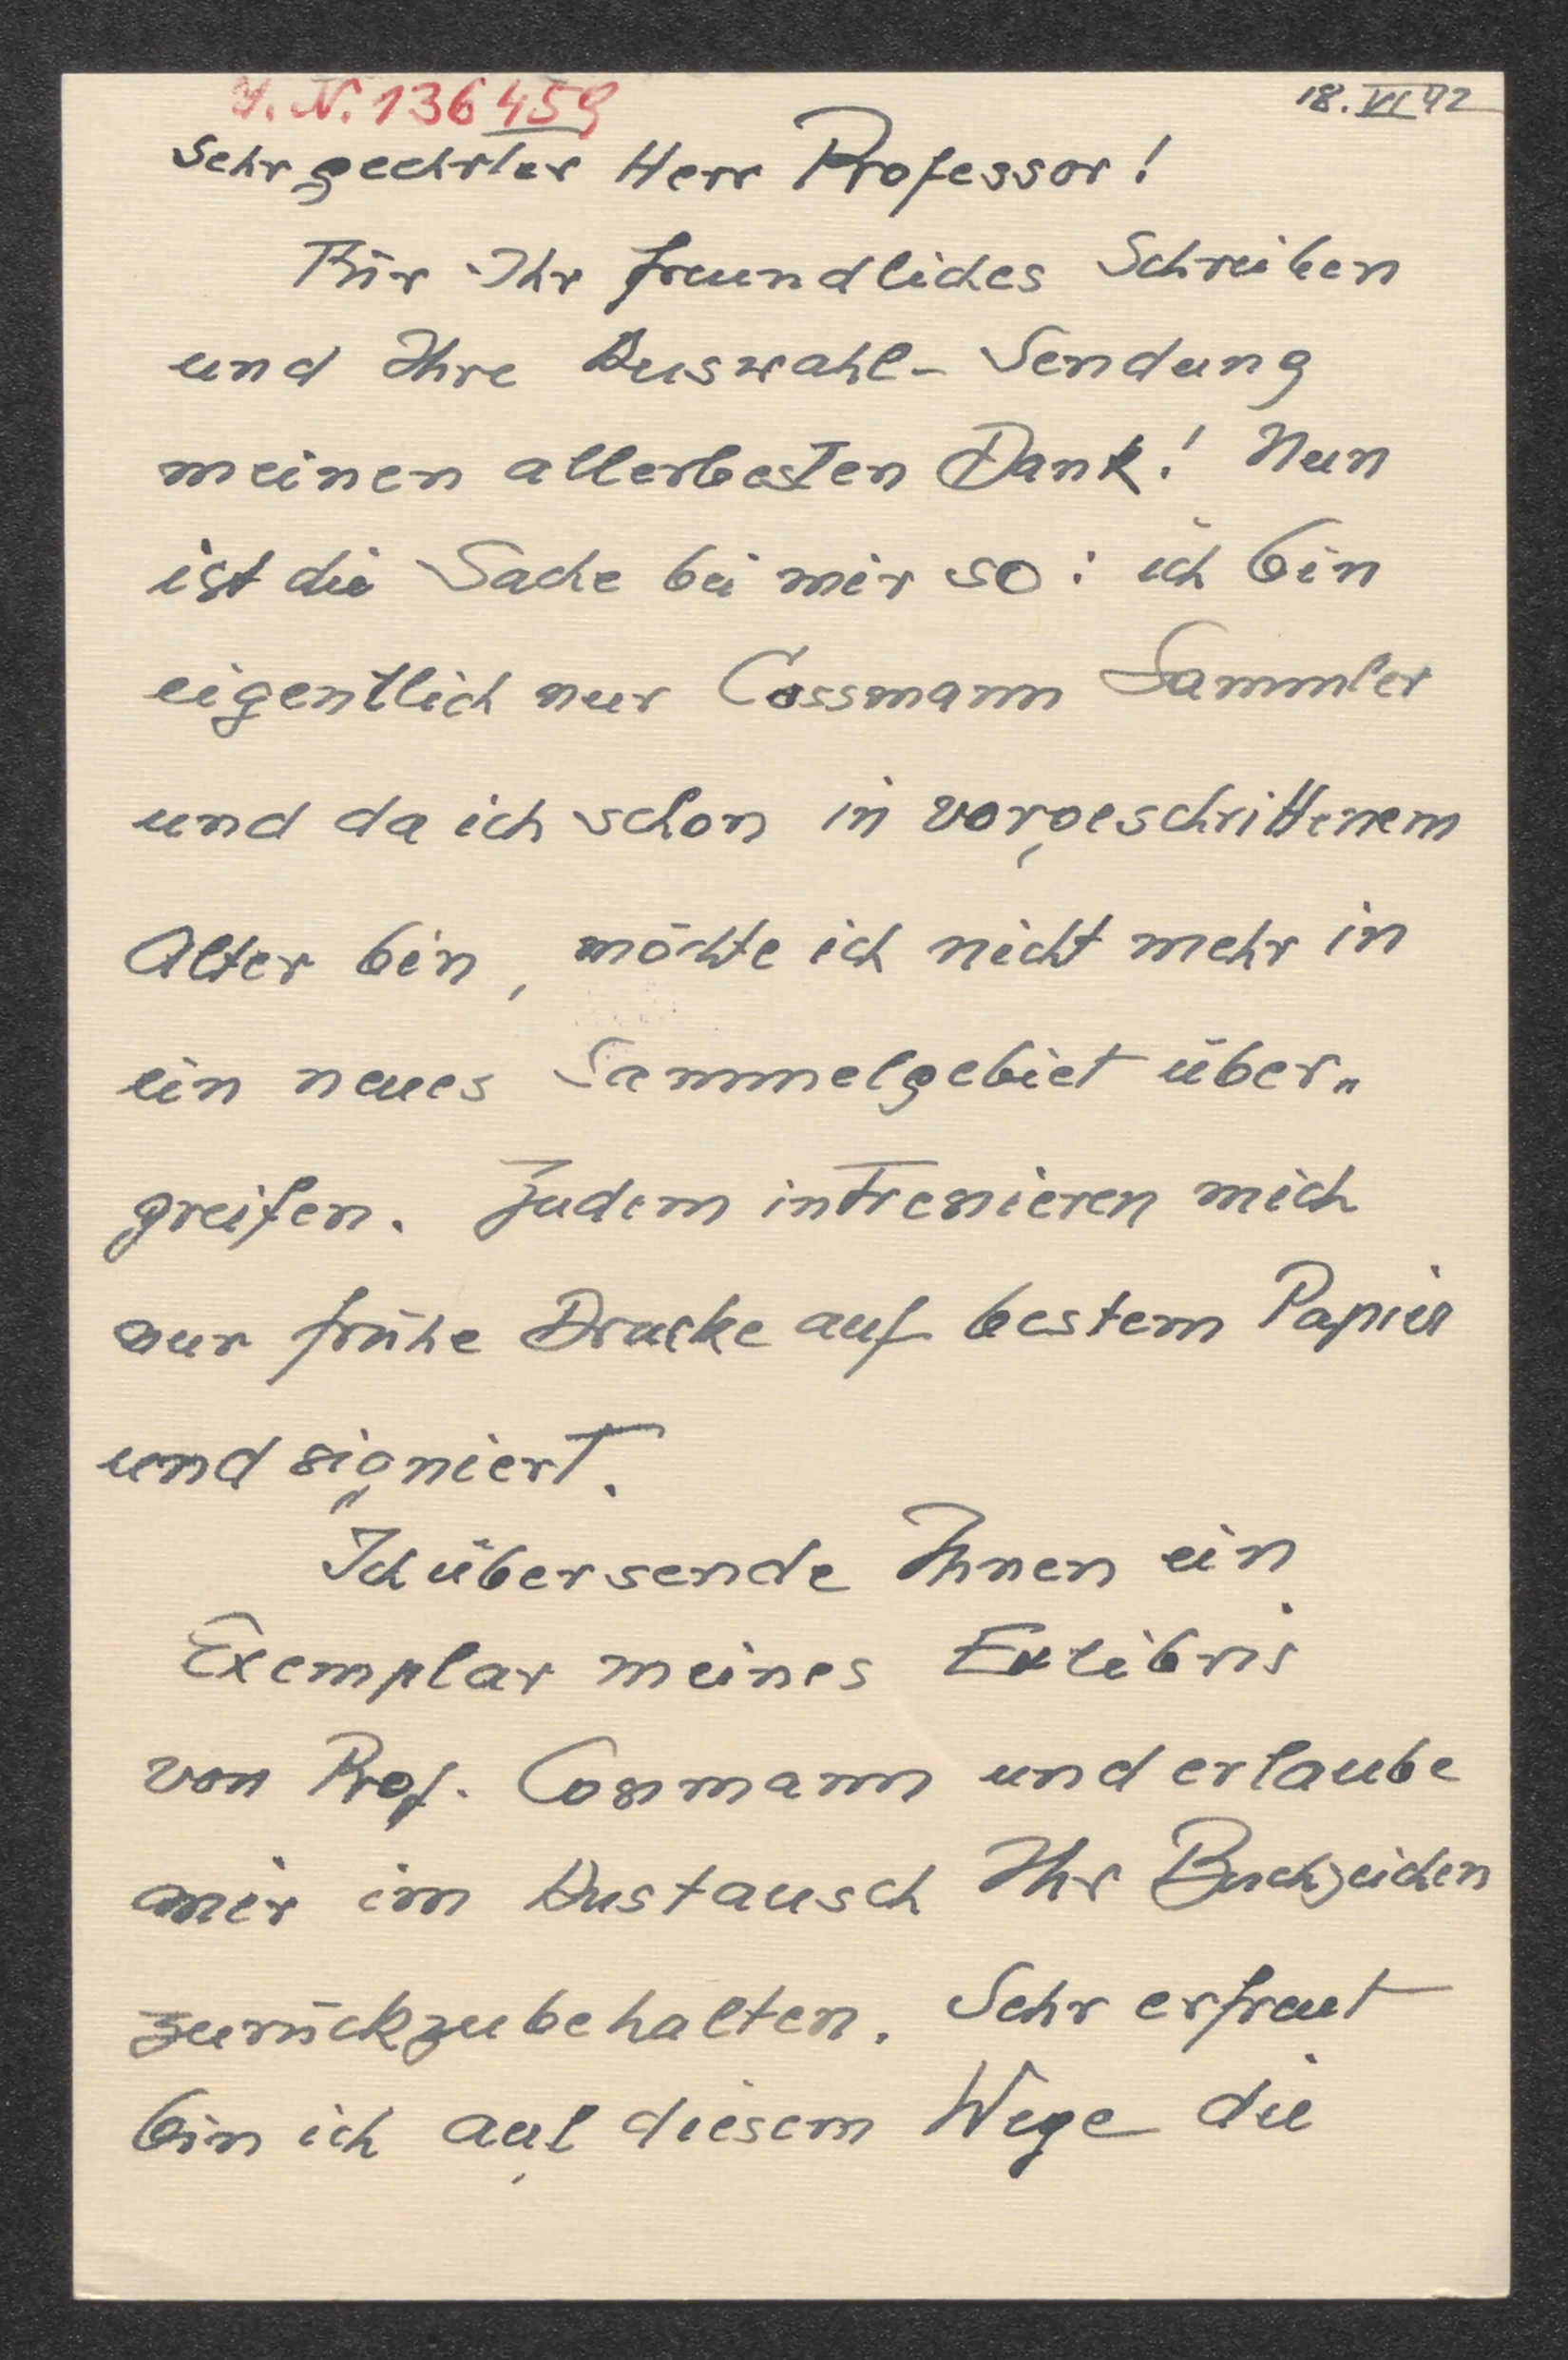 J. N. 136459
18. VI 42
Sehr geehrter Herr Professor!
Für Ihr freundliches Schreiben
und Ihre Auswahl- Sendung
meinen allerbesten Dank! Nun
ist die Sache bei mir so: ich bin
eigentlich nur Cossmann Sammler
und da ich schon in vorgeschrittenem
Alter bin, möchte ich nicht mehr in
ein neues Sammelgebiet über„
greifen. Zudem intresieren mich
nur frühe Drucke auf bestem Papier
und signiert.
Ich übersende Ihnen ein
Exemplar meines Exlibris
von Prof. Cossmann und erlaube
mir im Austausch Ihr Buchzeichen
zurückzubehalten. Sehr erfreut
bin ich auf diesem Wege die